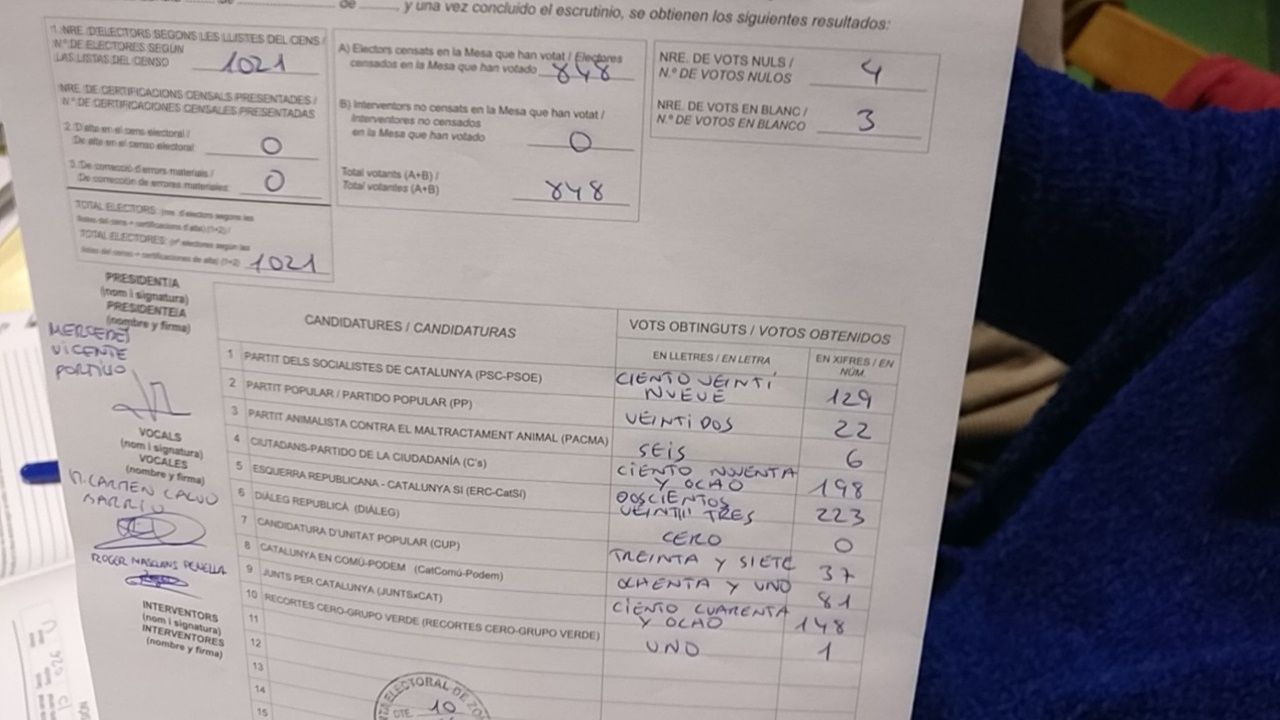 de , y una vez concluido el escrutinio, se obtienen los siguientes resultados:
1. NRE. D'ELECTORS SEGONS LES LLISTES DEL CENS /
N.º DE ELECTORES SEGÚN
LAS LISTAS DEL CENSO 1021
NRE. DE CERTIFICACIONS CENSALS PRESENTADES /
N.º DE CERTIFICACIONES CENSALES PRESENTADAS
2. D'alta en el cens electoral /
De alta en el censo electoral: 0
3. De correcció d'errors materials /
De corrección de errores materiales: 0
TOTAL ELECTORS: (nre. d'electors segons les
llistes del cens + certificacions d'alta) (1+2) /
TOTAL ELECTORES: (nº electores según las
listas del censo + certificaciones de alta) (1+2) 1021
A) Electors censats en la Mesa que han votat / Electores
censados en la Mesa que han votado 848
B) Interventors no censats en la Mesa que han votat /
Interventores no censados
en la Mesa que han votado 0
Total votants (A+B) /
Total votantes (A+B) 848
NRE. DE VOTS NULS /
N.º DE VOTOS NULOS 4
NRE. DE VOTS EN BLANC /
N.º DE VOTOS EN BLANCO 3
PRESIDENT/A
(nom i signatura)
PRESIDENTE/A
(nombre y firma)
MERCEDES
VICENTE
PORTILLO
VOCALS
(nom i signatura)
VOCALES
(nombre y firma)
M. CARMEN CALVO
BARRIO
ROGER
INTERVENTORS
(nom i signatura)
INTERVENTORES
(nombre y firma)
CANDIDATURES / CANDIDATURAS
VOTS OBTINGUTS / VOTOS OBTENIDOS
EN LLETRES / EN LETRA
EN XIFRES / EN
NÚM.
1 PARTIT DELS SOCIALISTES DE CATALUNYA (PSC-PSOE) CIENTO VEINTI
NUEVE 129
2 PARTIT POPULAR / PARTIDO POPULAR (PP) VEINTIDOS 22
3 PARTIT ANIMALISTA CONTRA EL MALTRACTAMENT ANIMAL (PACMA) SEIS 6
4 CIUTADANS-PARTIDO DE LA CIUDADANÍA (C's) CIENTO NOVENTA
Y OCHO 198
5 ESQUERRA REPUBLICANA - CATALUNYA SÍ (ERC-CatSí) DOSCIENTOS
VEINTI TRES 223
6 DIÀLEG REPUBLICÀ (DIÀLEG) CERO 0
7 CANDIDATURA D'UNITAT POPULAR (CUP) TREINTA Y SIETE 37
8 CATALUNYA EN COMÚ-PODEM (CatComú-Podem) OCHENTA Y UNO 81
9 JUNTS PER CATALUNYA (JUNTSxCAT) CIENTO CUARENTA
Y OCHO 148
10 RECORTES CERO-GRUPO VERDE (RECORTES CERO-GRUPO VERDE) UNO 1
11
12
13
14
15
ELECTORAL DE ZO
10